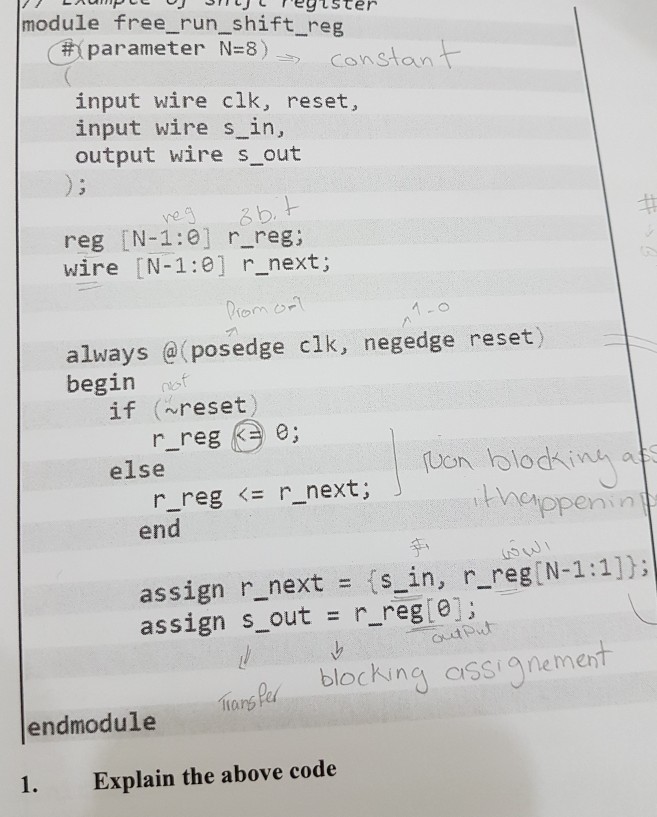 // Example of shift register
module free_run_shift_reg
#(parameter N=8) ⇒ constant
(
input wire clk, reset,
input wire s_in,
output wire s_out
);
reg 8bit
reg [N-1:0] r_reg;
wire [N-1:0] r_next;
From 0-1 1-0
always @(posedge clk, negedge reset)
begin not
if (~reset)
r_reg <= 0;
else Non blocking ass
r_reg <= r_next; it happening
end
assign r_next = {s_in, r_reg[N-1:1]};
assign s_out = r_reg[0];
output
blocking assignement
Transfer
endmodule
1. Explain the above code